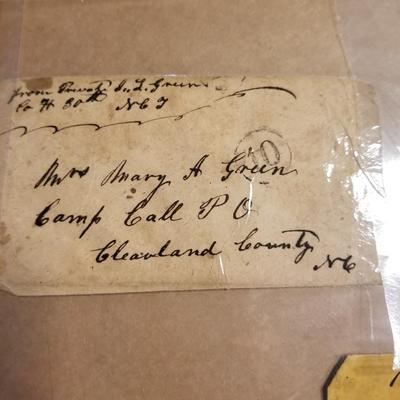 from Privat J. L. Green
Co H 30th N C T
10
Mrs Mary A Green
Camp Call P O
Cleavland County
N C